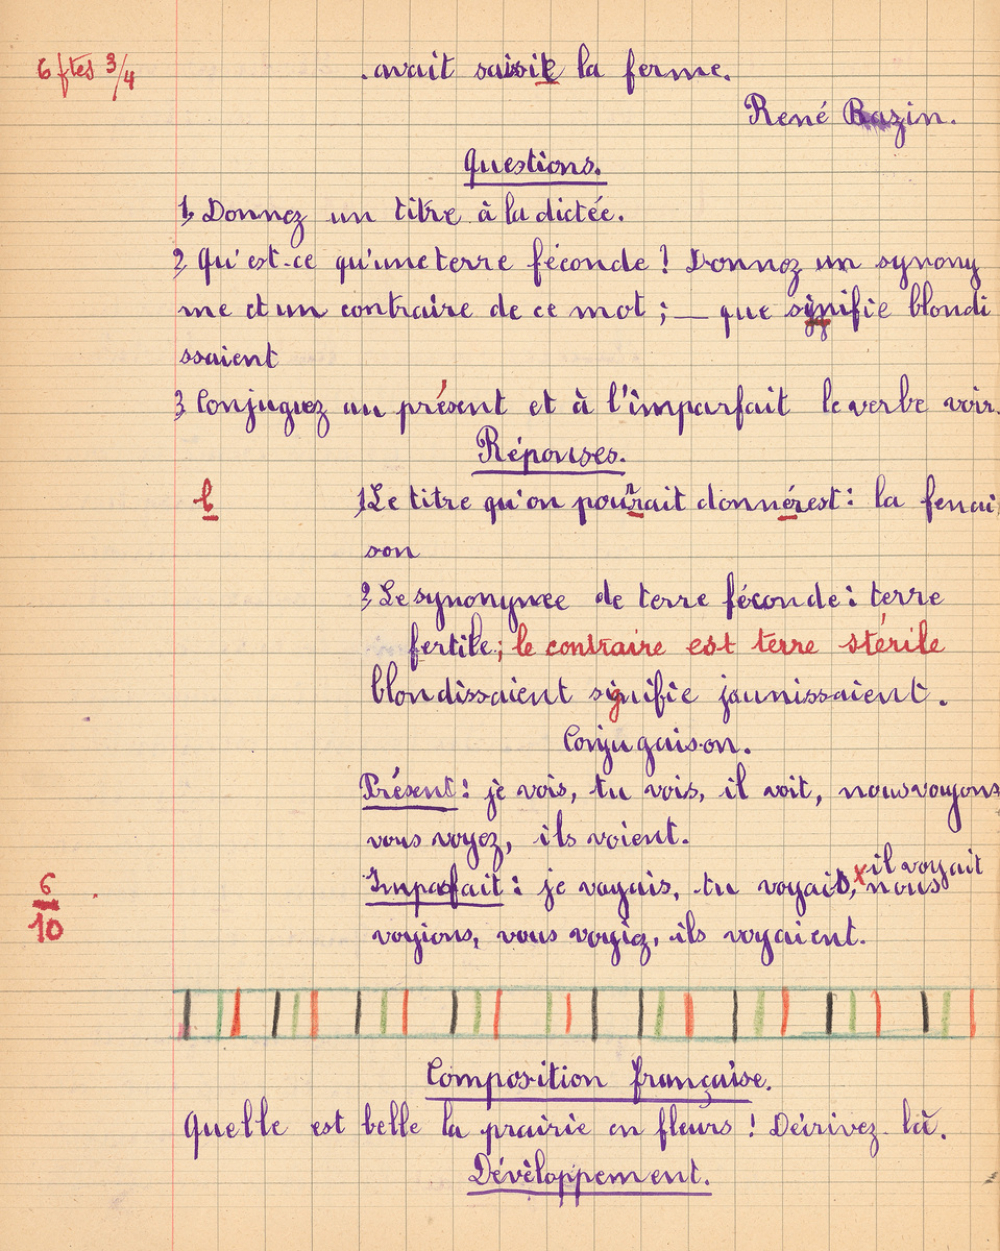 6 ftes 3/4
. avait saisie la ferme.
René Bazin.
Questions.
1, Donnez un titre à la dictée.
2 Qu'est-ce qu'une terre féconde ! Donnez un synony
me et un contraire de ce mot ; — que signifie blondi
ssaient
3 Conjuguez au présent et à l'imparfait le verbe voir.
Réponses.
1 Le titre qu'on pourrait donnérest : la fenai
son
2 Le synonymee de terre féconde : terre
fertile ; le contraire est terre stérile
blondissaient signifie jaunissaient.
Conjugaison.
Présent : je vois, tu vois, il voit, nous voyons
vous voyez, ils voient.
Imparfait : je voyais, tu voyais, x il voyait
nous
voyions, vous voyiez, ils voyaient.
6
10
Composition française.
Quelle est belle la prairie en fleurs ! Décrivez-là.
Développement.